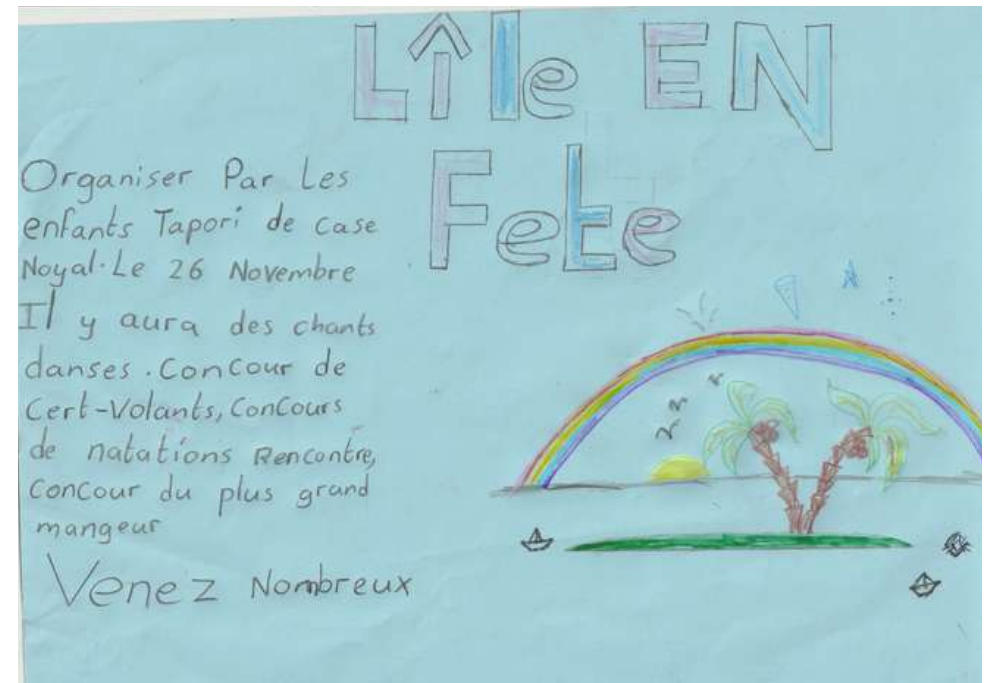 Lîle EN
Fete
Organiser Par Les
enfants Tapori de case
Noyal. Le 26 Novembre
Il y aura des chants
danses. Concour de
Cert-Volants, Concours
de natations Rencontre,
concour du plus grand
mangeur
Venez Nombreux